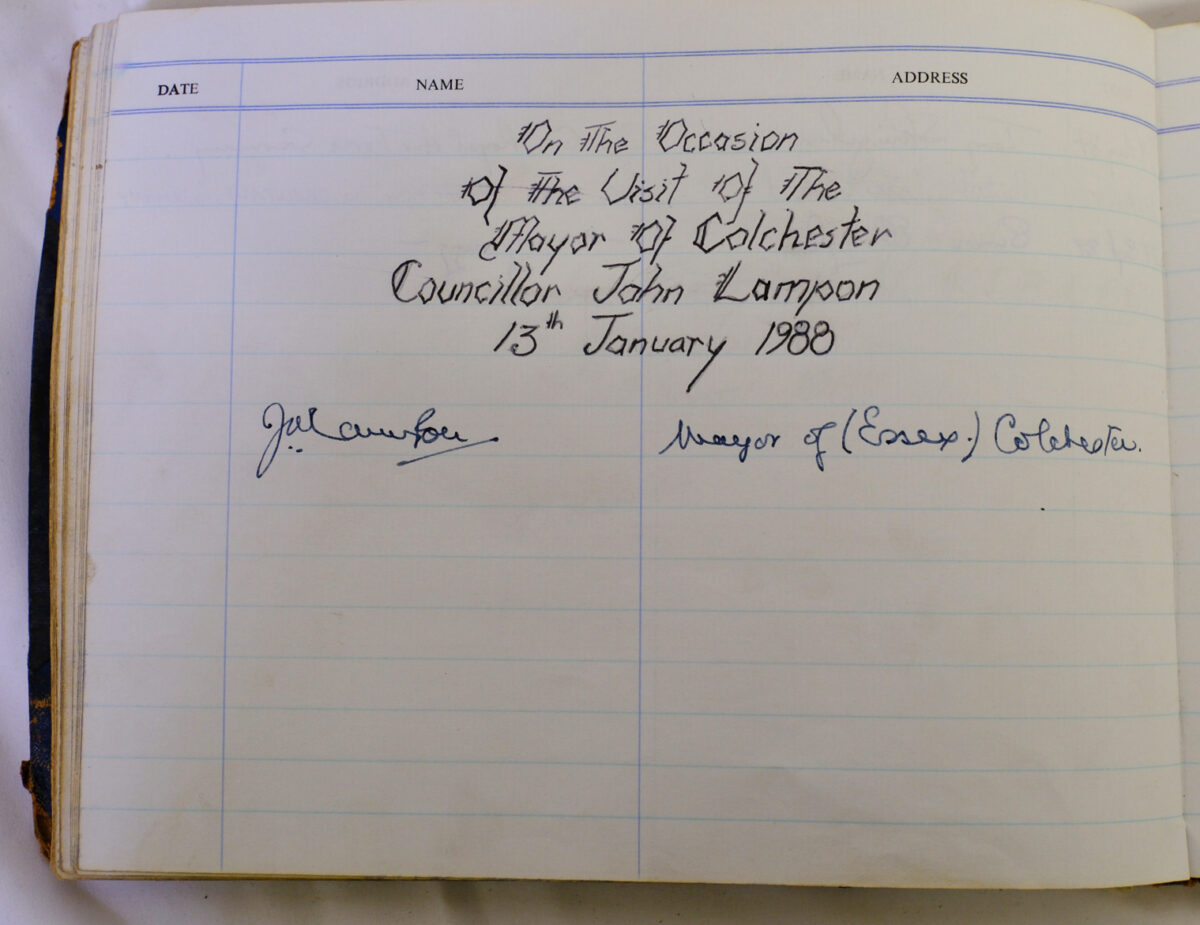 DATE NAME ADDRESS
On The Occasion
Of The Visit Of The
Mayor Of Colchester
Councillor John Lampon
13th January 1988
J. Lampon Mayor of (Essex.) Colchester.